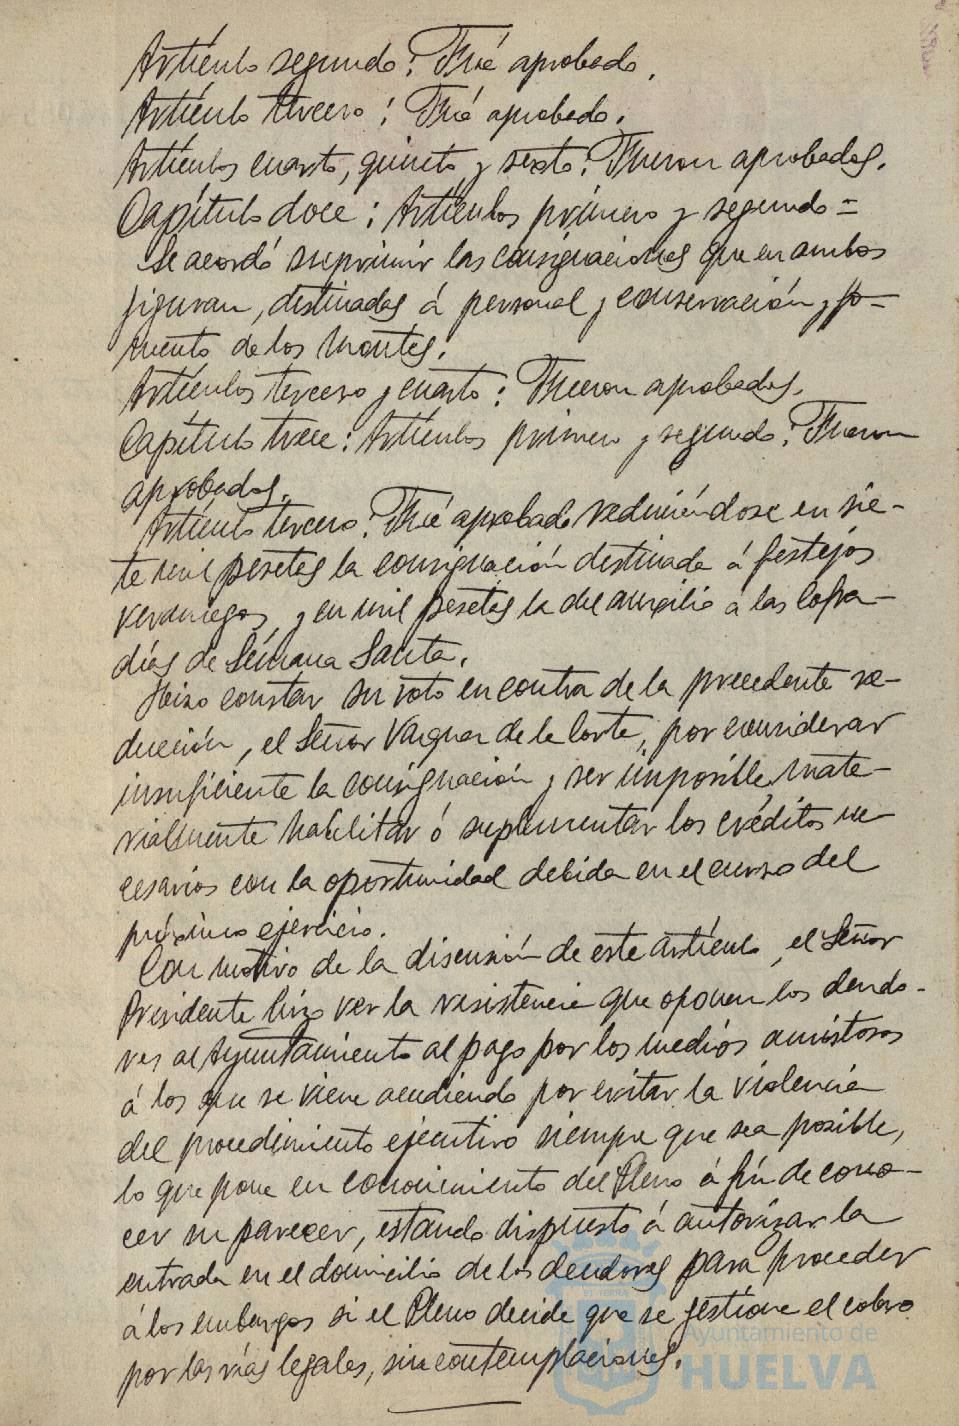 Artículo segundo: Fué aprobado.
Artículo tercero: Fué aprobado.
Artículos cuarto, quinto y sexto: Fueron aprobados.
Capítulo doce: Artículos primero y segundo =
Se acordó suprimir las consignaciones que en ambos
figuran, destinadas á personal y conservación y fo-
mento de los montes.
Artículos tercero y cuarto: Fueron aprobados.
Capítulo trece: Artículos primero y segundo: Fueron
aprobados.
Artículo tercero: Fué aprobado reduciéndose en sie-
te mil pesetas la consignación destinada á festejos
veraniegos y en mil pesetas la del auxilio a las Cofra-
días de Semana Santa.
Hizo constar su voto en contra de la precedente re-
ducción, el Señor Vazquez de la Corte, por considerar
insuficiente la consignación y ser imposible mate-
rialmente habilitar ó suplementar los créditos ne-
cesarios con la oportunidad debida en el curso del
próximo ejercicio.
Con motivo de la discusión de este artículo, el Señor
Presidente hizo ver la resistencia que oponen los deudo-
res al Ayuntamiento al pago por los medios amistosos
á los que se viene acudiendo por evitar la violencia
del procedimiento ejecutivo siempre que sea posible,
lo que pone en conocimiento del Pleno á fin de cono-
cer su parecer, estando dispuesto á autorizar la
entrada en el domicilio de los deudores para proceder
á los embargos si el Pleno decide que se gestione el cobro
por las vías legales, sin contemplaciones.
Ayuntamiento de
HUELVA